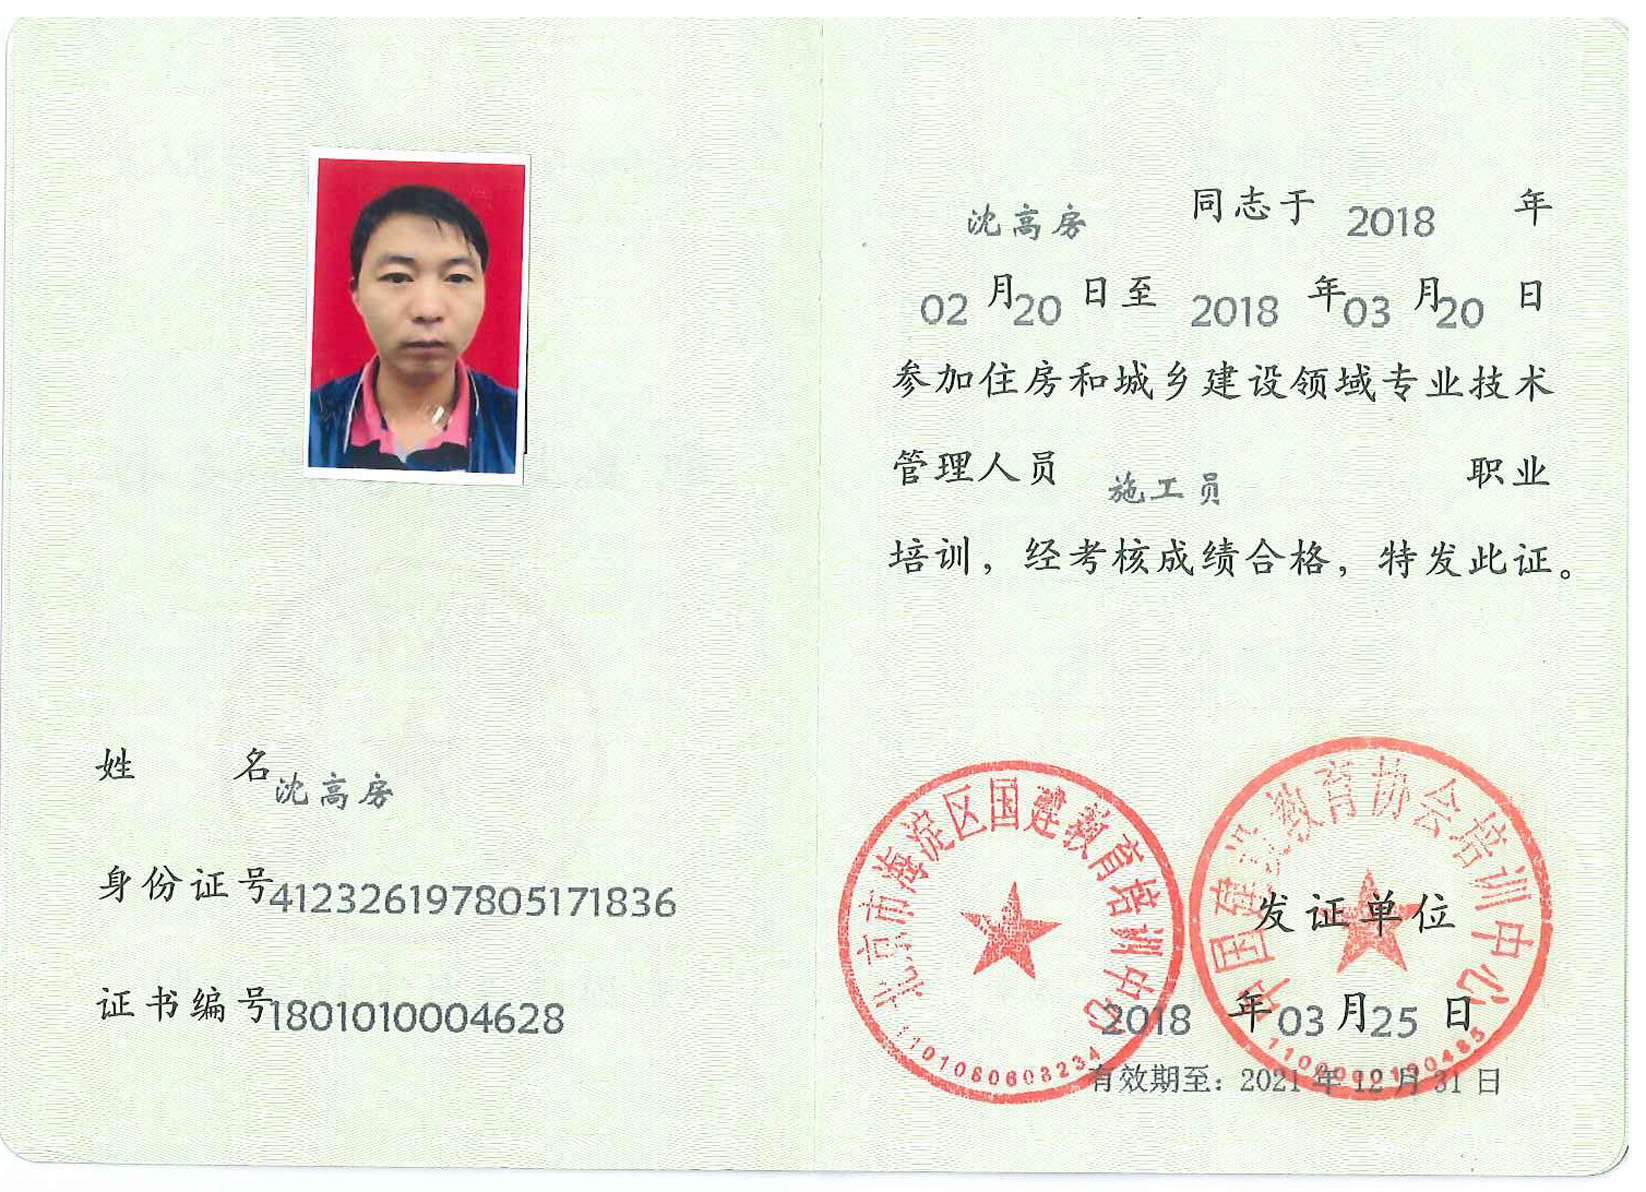 姓名 沈高房
身份证号 412326197805171836
证书编号 1801010004628
沈高房 同志于 2018 年
02 月 20 日至 2018 年 03 月 20 日
参加住房和城乡建设领域专业技术
管理人员 施工员 职业
培训，经考核成绩合格，特发此证。
北京市海淀区国建教育培训中心
中国建设教育协会培训中心
发证单位
2018 年 03 月 25 日
有效期至：2021 年 12 月 31 日